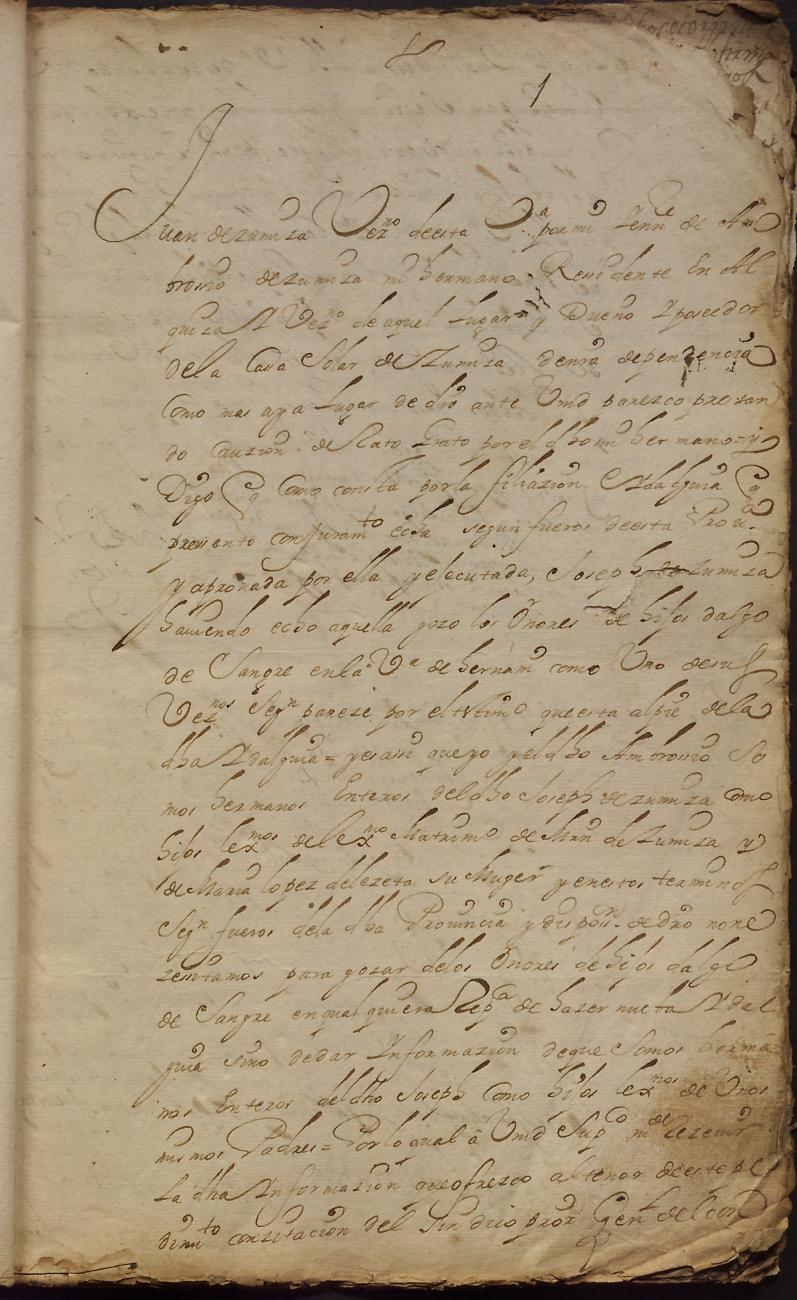 1
Juan de zumiza Vez.no de esta V.a por mi y en n.e de Am
brosio de zumiza mi hermano Residente en Al
quiza y Vez.no de aquel Lugar y Dueño y poseedor
de la Casa Solar de Zumiza de mra dependencia
Como mas aya lugar de dro ante Vmd parezco prestan
do Cauzion de Rato grato por el dho mi hermano y
Digo q Como consta por la filiazion y dalguia q
presento con juram.to echa segun fueros de esta Prov.a
y aprouada por ella y executada, Joseph de zumiza
hauiendo echo aquella gozo los Onores de hijos dalgo
de Sangre en la V.a de hernani como Vno de sus
Vez.nos Seg.n pareze por el testim.o que esta al pie de la
dha ydalguia = y es assi que yo y el dho Ambrosio So
mos hermanos Enteros del dho Joseph de zumiza como
hijos lex.mos de lex.mo Matrim.o de Mrn de Zumiza y
de Maria Lopez de lezeta su Muger y en estos terminos
Seg.n fueros de la dha Prouincia y dispos.n de dro no ne
zesitamos para gozar de los Onores de hijos dalgo
de Sangre en qualquiera Rep.ca de hazer nueba ydal
guia sino de dar Informazion de que Somos herma
nos Enteros del dho Joseph Como hijos lex.mos de Vnos
mismos Padres = Por lo qual a Vmd Sup.co m.de rezeuir
La dha Informazion que ofrezco al tenor de este pe
dim.to con zitacion del Sindico pror Gen.l del con